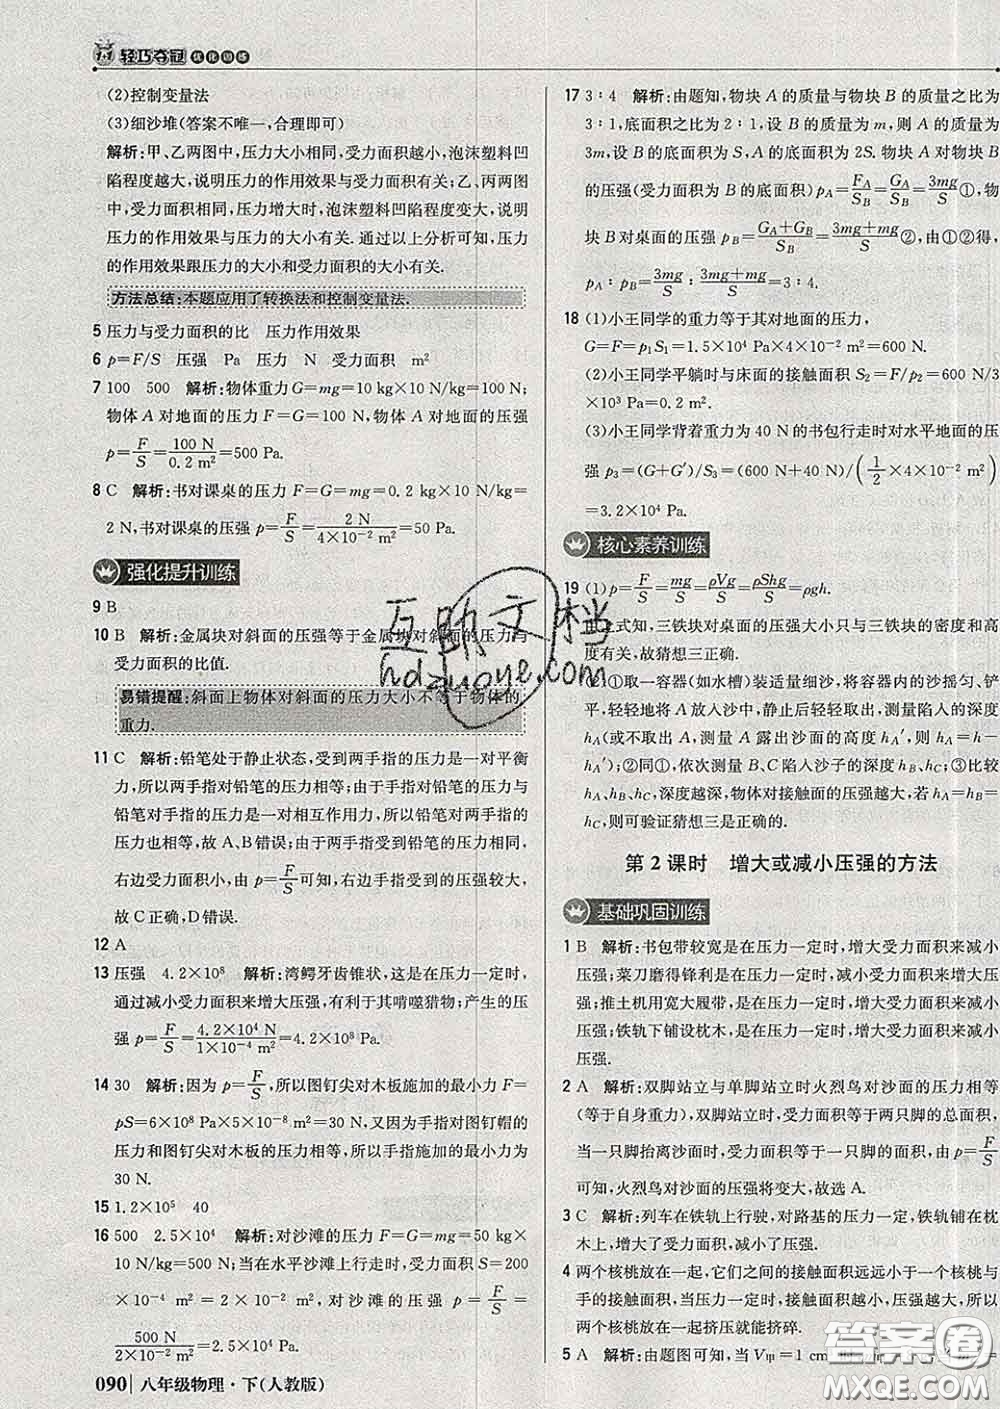 1+1 轻巧夺冠 优化训练
(2)控制变量法
(3)细沙堆(答案不唯一,合理即可)
解析:甲、乙两图中,压力大小相同,受力面积越小,泡沫塑料凹
陷程度越大,说明压力的作用效果与受力面积有关;乙、丙两图
中,受力面积相同,压力增大时,泡沫塑料凹陷程度变大,说明
压力的作用效果与压力的大小有关.通过以上分析可知,压力
的作用效果跟压力的大小和受力面积的大小有关.
方法总结:本题应用了转换法和控制变量法.
5 压力与受力面积的比 压力作用效果
6 p=F/S 压强 Pa 压力 N 受力面积 m²
7 100 500 解析:物体重力G=mg=10 kg×10 N/kg=100 N;
物体 A 对地面的压力 F=G=100 N,物体 A 对地面的压强
p=F/S=100 N/0.2 m²=500 Pa.
8 C 解析:书对课桌的压力 F=G=mg=0.2 kg×10 N/kg=
2 N,书对课桌的压强 p=F/S=2 N/4×10⁻² m²=50 Pa.
强化提升训练
9 B
10 B 解析:金属块对斜面的压强等于金属块对斜面的压力与
受力面积的比值.
易错提醒:斜面上物体对斜面的压力大小不等于物体的
重力.
11 C 解析:铅笔处于静止状态,受到两手指的压力是一对平衡
力,所以两手指对铅笔的压力相等;由于手指对铅笔的压力与
铅笔对手指的压力是一对相互作用力,所以铅笔对两手指的
压力也相等,故 A、B 错误;由于两手指所受铅笔的压力相同,
右边受力面积小,由 p=F/S 可知,右边手指受到的压强较大,
故 C 正确,D 错误.
12 A
13 压强 4.2×10⁸ 解析:湾鳄牙齿锥状,这是在压力一定时,
通过减小受力面积来增大压强,有利于其啃噬猎物;产生的压
强 p=F/S=4.2×10⁴ N/1×10⁻⁴ m²=4.2×10⁸ Pa.
14 30 解析:因为 p=F/S,所以图钉尖对木板施加的最小力 F=
pS=6×10⁸ Pa×5×10⁻⁸ m²=30 N,又因为手指对图钉帽的
压力和图钉尖对木板的压力相等,所以手指对图钉的压力为
30 N.
15 1.2×10⁵ 40
16 500 2.5×10⁴ 解析:对沙滩的压力 F=G=mg=50 kg×
10 N/kg=500 N;当在水平沙滩上行走时,受力面积 S=200
×10⁻⁴ m²=2×10⁻² m²,对沙滩的压强 p=F/S=
500 N/2×10⁻² m²=2.5×10⁴ Pa.
090 八年级物理·下(人教版)
17 3∶4 解析:由题知,物块 A 的质量与物块 B 的质量之比为
3∶1,底面积之比为 2∶1,设 B 的质量为 m,则 A 的质量为
3m,设 B 的底面积为 S,A 的底面积为 2S.物块 A 对物块 B
的压强(受力面积为 B 的底面积)pA=FA/SB=GA/SB=3mg/S①,物
块 B 对桌面的压强 pB=(GA+GB)/SB=(3mg+mg)/S②,由①②得,
pA∶pB=3mg/S∶(3mg+mg)/S=3∶4.
18 (1)小王同学的重力等于其对地面的压力,
G=F=p₁S₁=1.5×10⁴ Pa×4×10⁻² m²=600 N.
(2)小王同学平躺时与床面的接触面积 S₂=F/p₂=600 N/3
×10³ Pa=0.2 m².
(3)小王同学背着重力为 40 N 的书包行走时对水平地面的压
强 p₃=(G+G′)/S₃=(600 N+40 N)/(1/2×4×10⁻² m²)
=3.2×10⁴ Pa.
核心素养训练
19 (1)p=F/S=mg/S=ρVg/S=ρShg/S=ρgh.
式知,三铁块对桌面的压强大小只与三铁块的密度和高
度有关,故猜想三正确.
(2)①取一容器(如水槽)装适量细沙,将容器内的沙摇匀、铲
平,轻轻地将 A 放入沙中,静止后轻轻取出,测量陷入的深度
hA(或不取出 A,测量 A 露出沙面的高度 hA′,则 hA=h-
hA′);②同①,依次测量 B、C 陷入沙子的深度 hB、hC;③比较
hA、hB、hC,深度越深,物体对接触面的压强越大,若 hA=hB=
hC,则可验证猜想三是正确的.
第 2 课时 增大或减小压强的方法
基础巩固训练
1 B 解析:书包带较宽是在压力一定时,增大受力面积来减小
压强;菜刀磨得锋利是在压力一定时,减小受力面积来增大压
强;推土机用宽大履带,是在压力一定时,增大受力面积来减
小压强;铁轨下铺设枕木,是在压力一定时,增大受力面积来减小
压强.
2 A 解析:双脚站立与单脚站立时火烈鸟对沙面的压力相等
(等于自身重力),双脚站立时,受力面积等于两只脚的总面积,
当一只脚抬离沙面时,受力面积等于一只脚的面积,由 p=F/S
可知,火烈鸟对沙面的压强将变大,故选 A.
3 C 解析:列车在铁轨上行驶,对路基的压力一定,铁轨铺在枕
木上,增大了受力面积,减小了压强.
4 两个核桃放在一起,它们之间的接触面积远远小于一个核桃与
手的接触面积,当压力一定时,受力面积越小,压强越大,所以
两个核桃放在一起挤压就能挤碎.
5 A 解析:由题图可知,当 V
互助文档
hdzuoye.com
答案圈
MXQE.COM